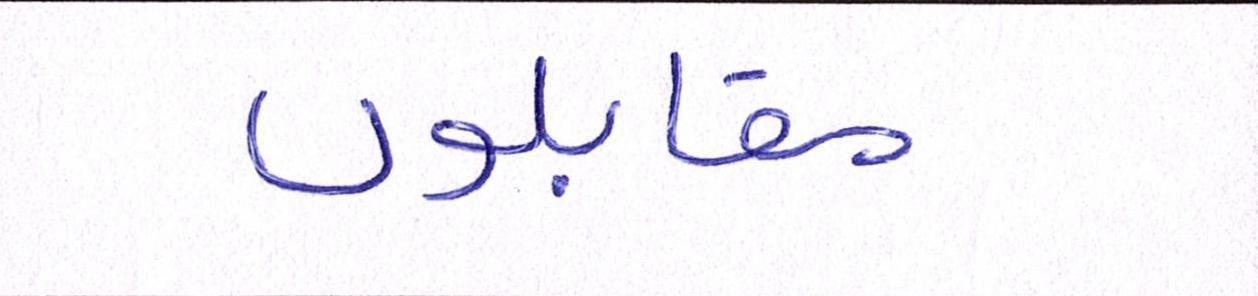 مقابلوں